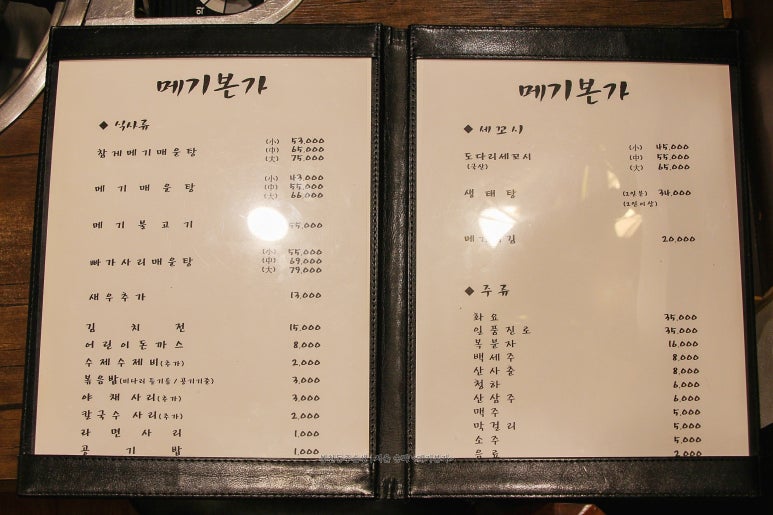 메기본가
◆ 식사류
참게메기매운탕 (小) 53,000
(中) 65,000
(大) 75,000
메기매운탕 (小) 43,000
(中) 55,000
(大) 66,000
메기불고기 55,000
빠가사리매운탕 (小) 55,000
(中) 69,000
(大) 79,000
새우추가 13,000
김치전 15,000
어린이돈까스 8,000
수제수제비(추가) 2,000
볶음밥 3,000
야채사리(추가) 3,000
칼국수사리(추가) 2,000
라면사리 1,000
공기밥 1,000
메기본가
◆ 세꼬시
도다리세꼬시 (小) 45,000
(국산) (中) 55,000
(大) 65,000
생태탕 (1인분) 34,000
(2인이상)
20,000
◆ 주류
화요 35,000
일품진로 35,000
복분자 16,000
백세주 8,000
산사춘 8,000
청하 6,000
산삼주 6,000
맥주 5,000
막걸리 5,000
소주 5,000
음료 2,000